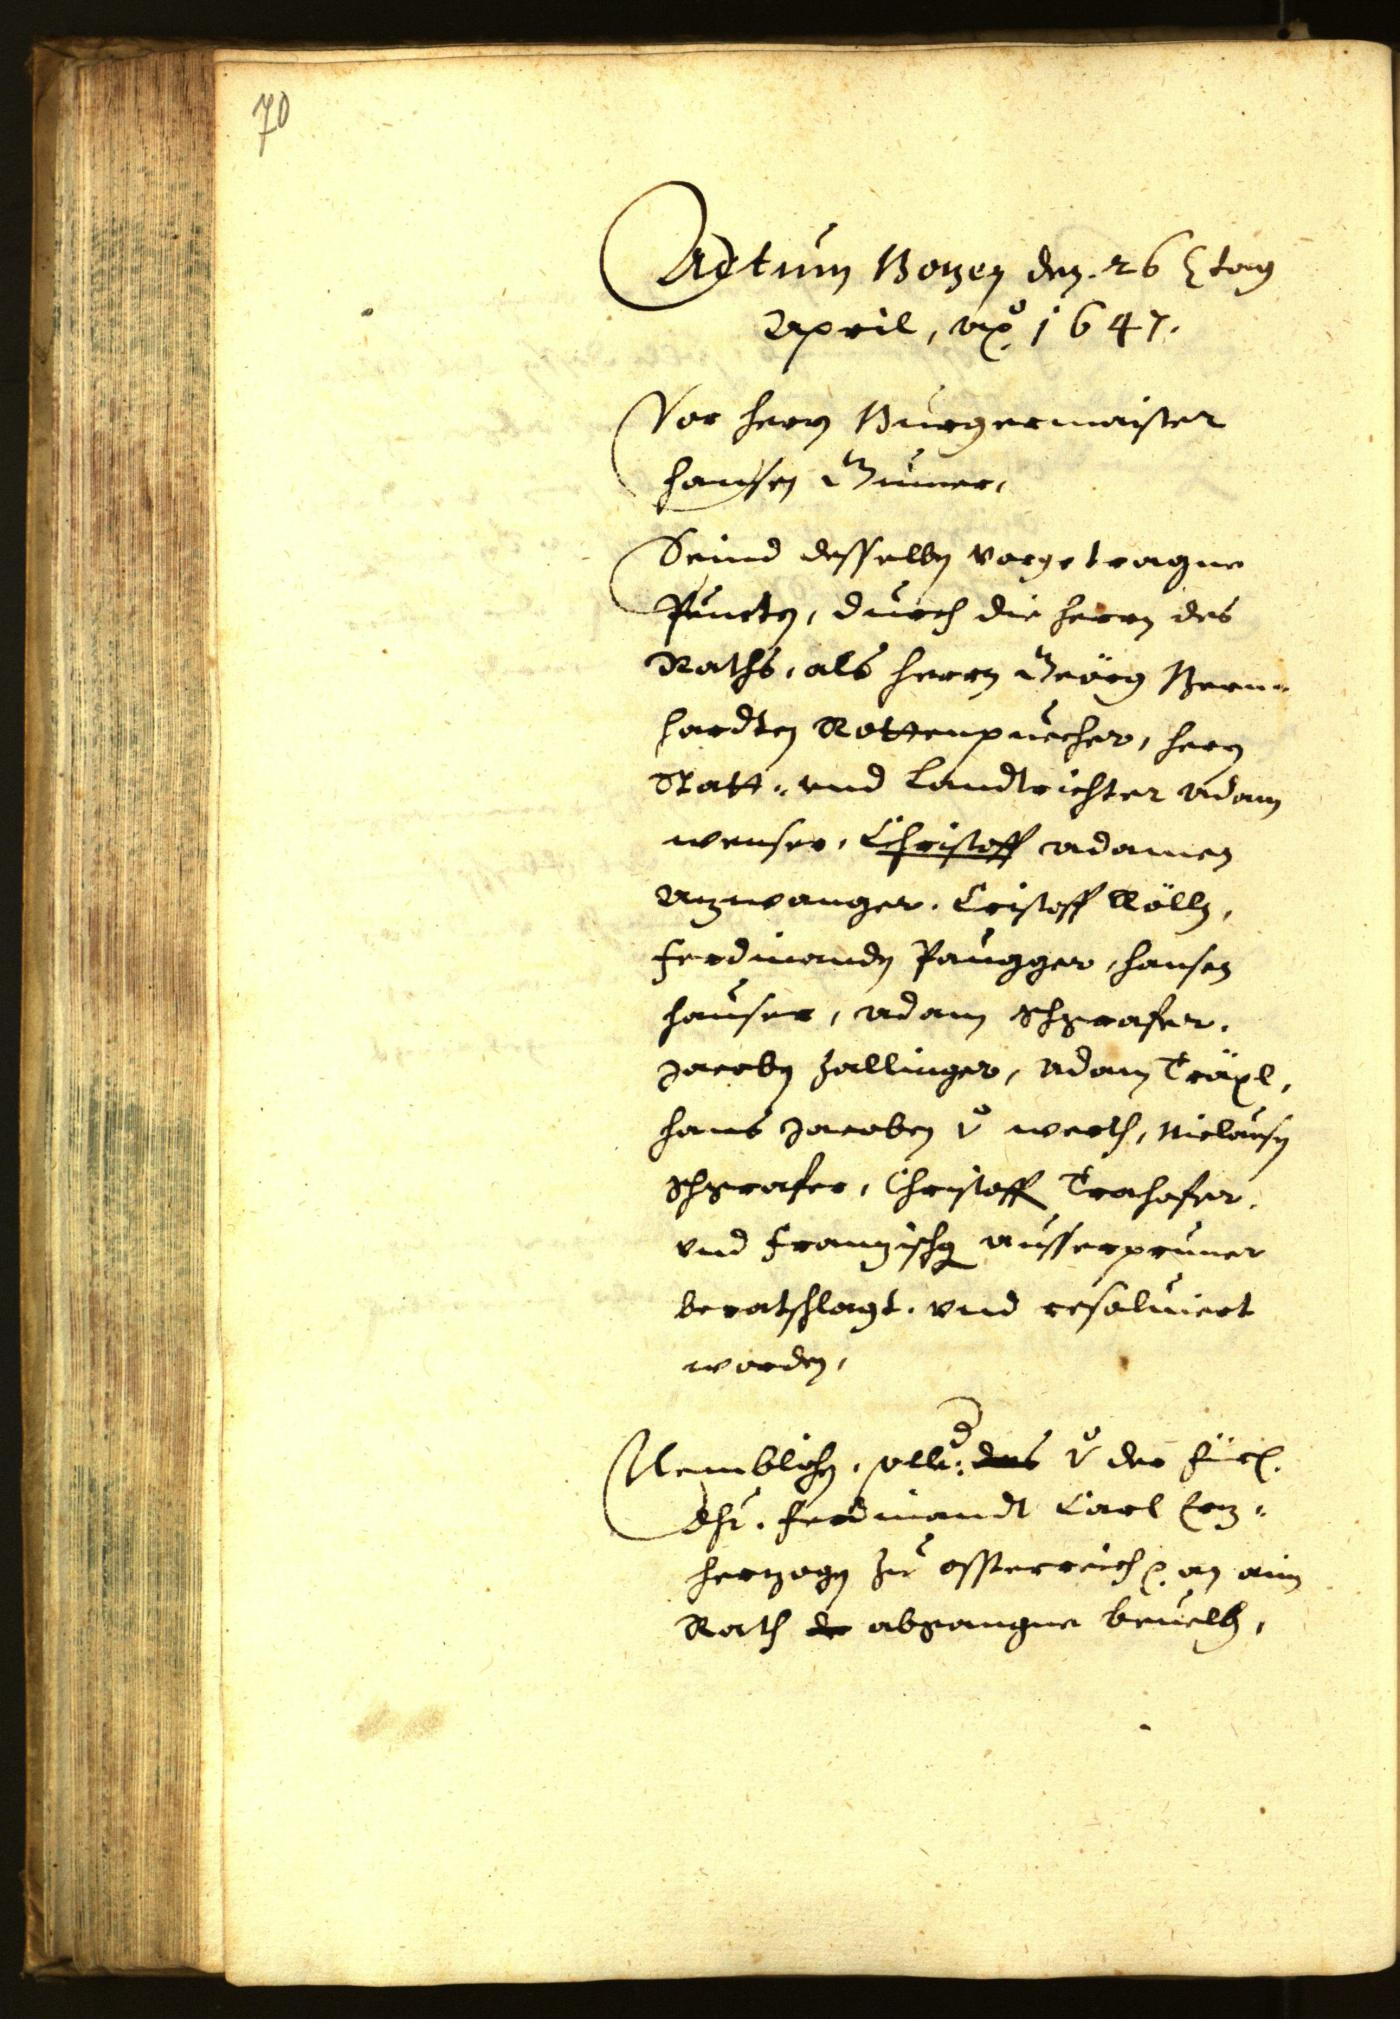 70
Actum Botzen den. 26 tag
April, Ao. 1647.
Vor herrn Burgermaister
hansen Gumer,
Seind desselben vorgetragne
Puncten, durch die herrn des
Raths, als herrn Geörg Bern-
hardten Rottenpuecher, herrn
Statt- vnd Landtrichter Adam
wenser, Christoff adamen
Atzwanger, Cristoff Wölln,
Ferdinanden Paugger, hansen
hauser, adam Schgrafer,
Jacoben Zallinger, Adam Träxl,
hans Jacoben v werth, Niclausen
Schgrafer, Christoff Trahofer,
vnd Frantzischg ausserpruner
beratschlagt, vnd resoluiert
worden,
Nemblichen, solle: das v der Fürl.
Dht. Ferdinandt Carl Ertz-
hertzogen zu össterreich an ain
Rath de abgangne beuelh,